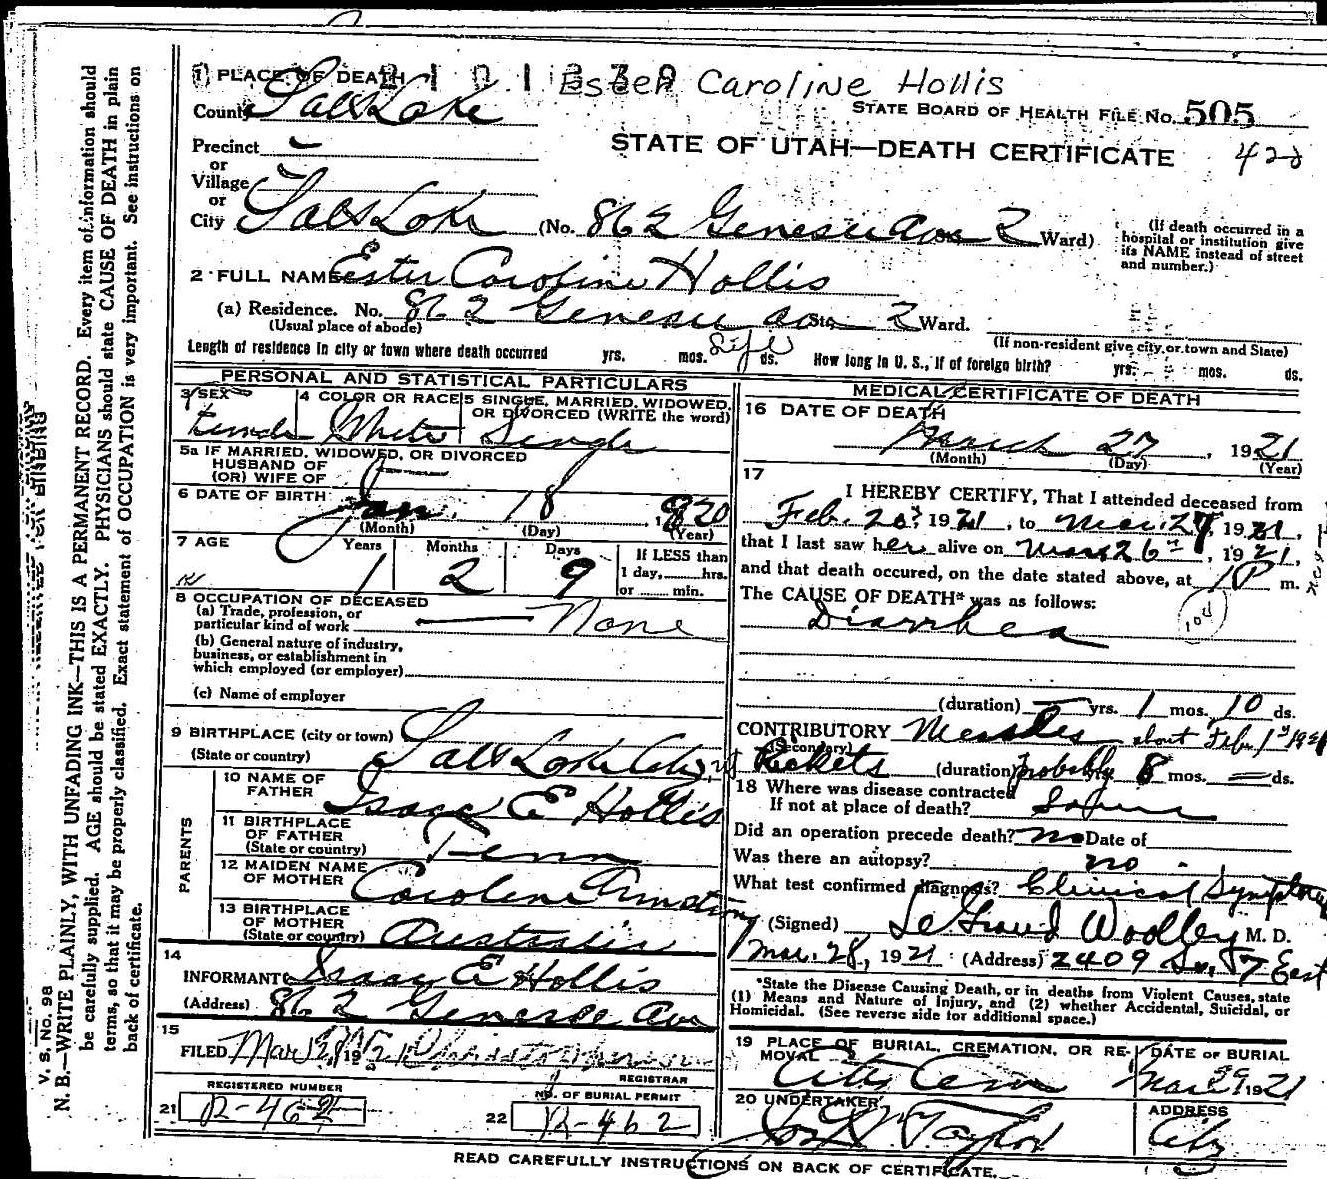 1 PLACE OF DEATH
Ester Caroline Hollis
County Salt Lake
STATE BOARD OF HEALTH FILE No. 505
STATE OF UTAH—DEATH CERTIFICATE
Precinct
or
Village
or
City Salt Lake (No. 862 Genesee Ave St. 2 Ward)
(If death occurred in a hospital or institution give its NAME instead of street and number.)
2 FULL NAME Ester Caroline Hollis
(a) Residence. No. 862 Genesee Ave St. 2 Ward.
(Usual place of abode)
(If non-resident give city or town and State)
Length of residence in city or town where death occurred yrs. mos. Life ds. How long in U. S., if of foreign birth? yrs. mos. ds.
PERSONAL AND STATISTICAL PARTICULARS
3 SEX
Female
4 COLOR OR RACE
White
5 SINGLE, MARRIED, WIDOWED, OR DIVORCED (WRITE the word)
Single
5a IF MARRIED, WIDOWED, OR DIVORCED
HUSBAND OF
(OR) WIFE OF
6 DATE OF BIRTH Jan. 18, 1920
(Month) (Day) (Year)
7 AGE Years Months Days
1 2 9
If LESS than
1 day, hrs.
or min.
8 OCCUPATION OF DECEASED
(a) Trade, profession, or
particular kind of work None
(b) General nature of industry,
business, or establishment in
which employed (or employer)
(c) Name of employer
9 BIRTHPLACE (city or town)
(State or country) Salt Lake City, Ut
PARENTS
10 NAME OF
FATHER Isaac E Hollis
11 BIRTHPLACE
OF FATHER
(State or country) Tenn
12 MAIDEN NAME
OF MOTHER Caroline Armstrong
13 BIRTHPLACE
OF MOTHER
(State or country) Australia
14
INFORMANT Isaac E Hollis
(Address) 862 Genesee Ave
15
FILED Mar 28, 1921
REGISTRAR
REGISTERED NUMBER
21 R-462
NO. OF BURIAL PERMIT
22 R-462
MEDICAL CERTIFICATE OF DEATH
16 DATE OF DEATH
March 27, 1921
(Month) (Day) (Year)
17
I HEREBY CERTIFY, That I attended deceased from
Feb. 20, 1921, to Mar. 27, 1921,
that I last saw her alive on Mar 26th, 1921,
and that death occured, on the date stated above, at 1 P m.
The CAUSE OF DEATH* was as follows:
Diarrhea
(duration) yrs. 1 mos. 10 ds.
CONTRIBUTORY Measles about Feb. 1st 1921
(Secondary)
Rickets (duration) probably 8 mos. ds.
18 Where was disease contracted
If not at place of death? Same
Did an operation precede death? no Date of
Was there an autopsy? no
What test confirmed diagnosis? Clinical Symptoms
(Signed) LeGrand Woolley M. D.
Mar. 28, 1921 (Address) 2409 So. 7 East
*State the Disease Causing Death, or in deaths from Violent Causes, state
(1) Means and Nature of Injury, and (2) whether Accidental, Suicidal, or
Homicidal. (See reverse side for additional space.)
19 PLACE OF BURIAL, CREMATION, OR REMOVAL
City Cem
DATE OF BURIAL
Mar 29 1921
20 UNDERTAKER
Jos. Wm. Taylor
ADDRESS
City
READ CAREFULLY INSTRUCTIONS ON BACK OF CERTIFICATE.
V. S. No. 98
N. B.—WRITE PLAINLY, WITH UNFADING INK—THIS IS A PERMANENT RECORD. Every item of information should
be carefully supplied. AGE should be stated EXACTLY. PHYSICIANS should state CAUSE OF DEATH in plain
terms, so that it may be properly classified. Exact statement of OCCUPATION is very important. See instructions on
back of certificate.